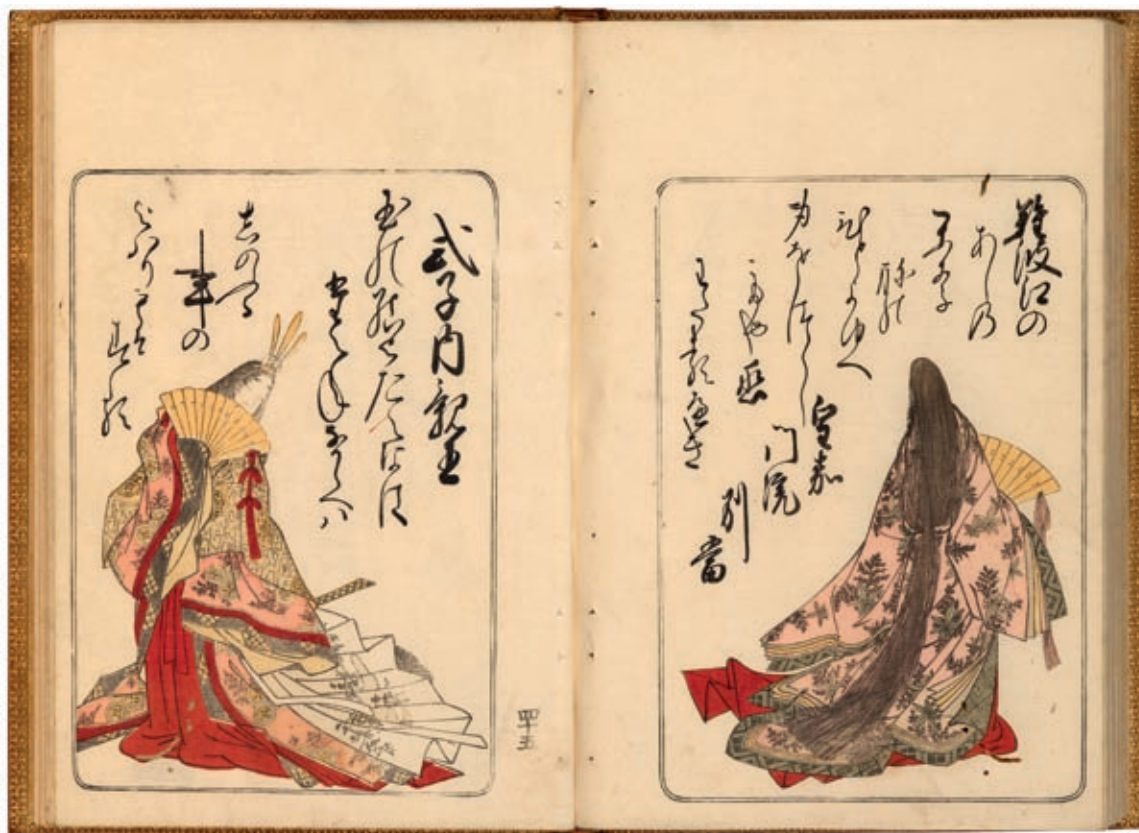 難波江の
あしの
かり
ねの
ひとよゆへ
身をつくし
てや恋
わたるへき
皇嘉
門院
別當
式子内親王
玉の緒よたえなは
たえねなからへハ
しのふる
事の
よハりもそ
する
四十五